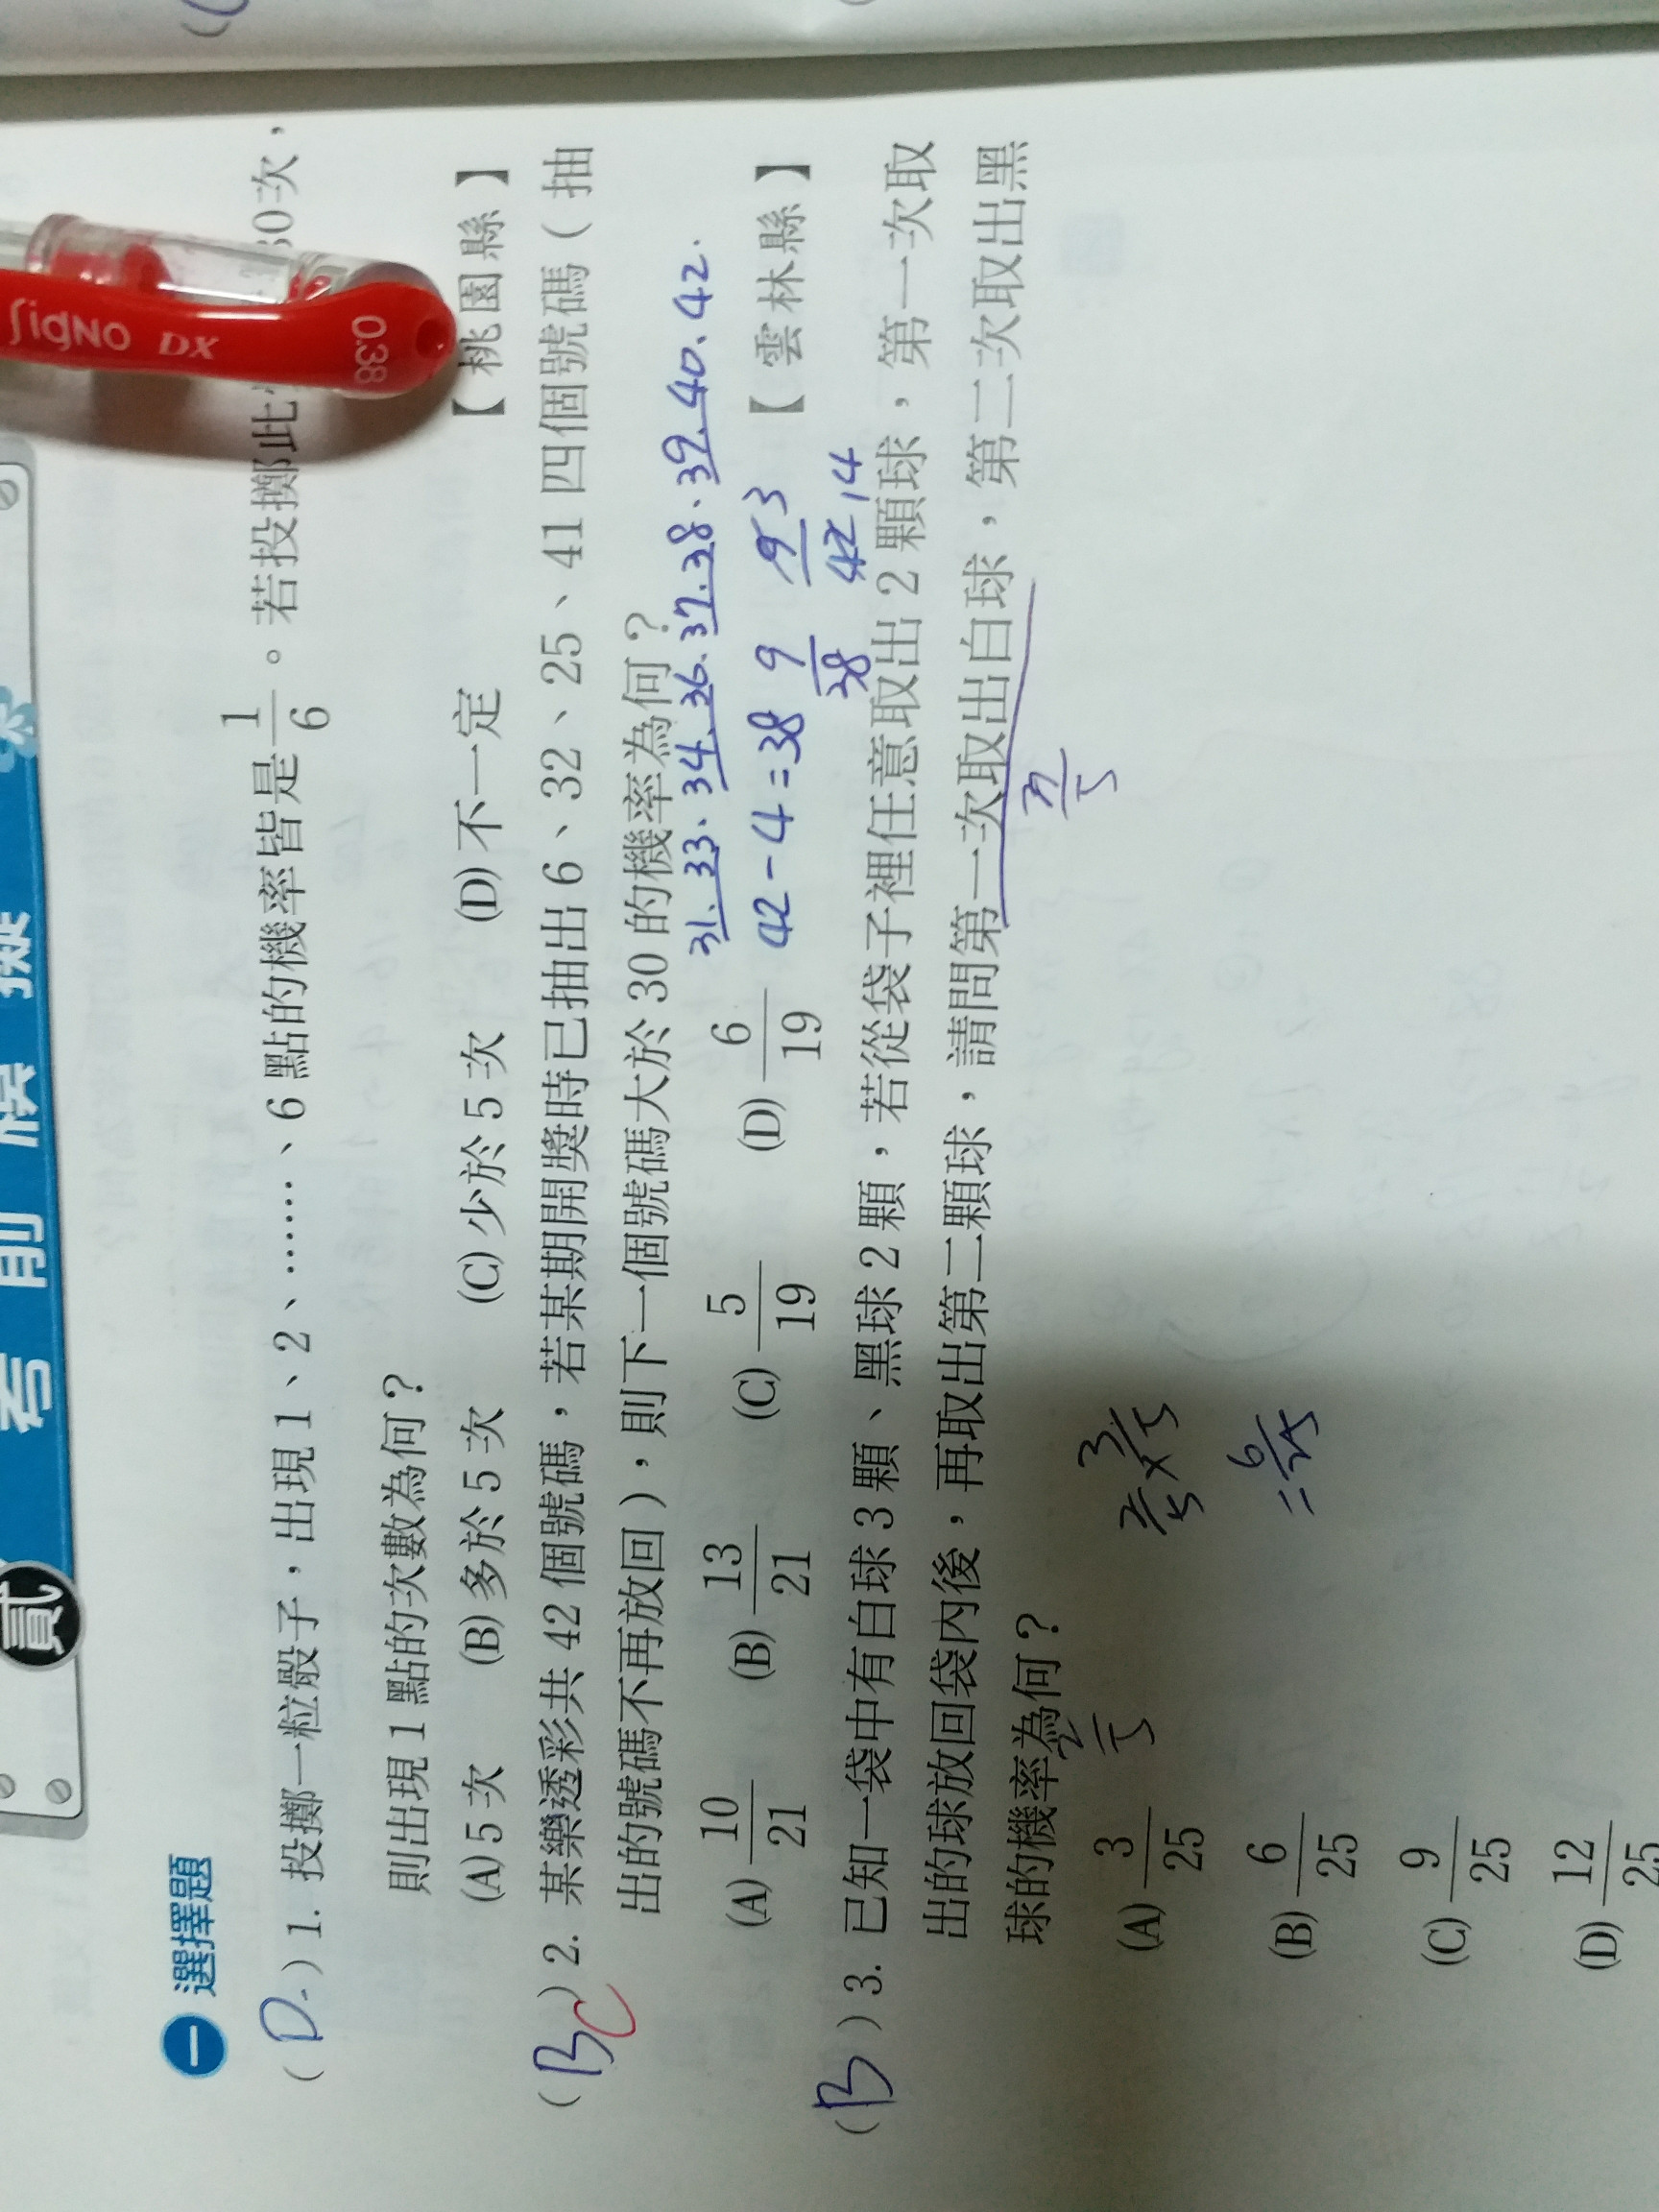 考前模擬
貳
一 選擇題
( D ) 1. 投擲一粒骰子，出現 1、2、……、6 點的機率皆是 1/6。若投擲此 30 次，
則出現 1 點的次數為何？
(A) 5 次 (B) 多於 5 次 (C) 少於 5 次 (D) 不一定 【桃園縣】
( B C ) 2. 某樂透彩共 42 個號碼，若某期開獎時已抽出 6、32、25、41 四個號碼（抽
出的號碼不再放回），則下一個號碼大於 30 的機率為何？
31. 33. 34. 36. 37. 38. 39. 40. 42.
(A) 10/21 (B) 13/21 (C) 5/19 (D) 6/19 【雲林縣】
42 - 4 = 38 9/38 9/42 3/14
( B ) 3. 已知一袋中有白球 3 顆、黑球 2 顆，若從袋子裡任意取出 2 顆球，第一次取
出的球放回袋內後，再取出第二顆球，請問第一次取出白球，第二次取出黑
球的機率為何？
3/5
2/5
(A) 3/25
2/5 × 3/5
(B) 6/25
= 6/25
(C) 9/25
(D) 12/25
SigNO DX
0.38